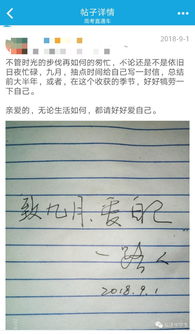 帖子详情
周考直通车
2018-9-1
不管时光的步伐再如何的匆忙，不论还是不是依旧
日夜忙碌，九月，抽点时间给自己写一封信，总结
前大半年，或者，在这个收获的季节，好好犒劳一
下自己。
亲爱的，无论生活如何，都请好好爱自己。
致九月，爱自己
一路人
2018.9.1